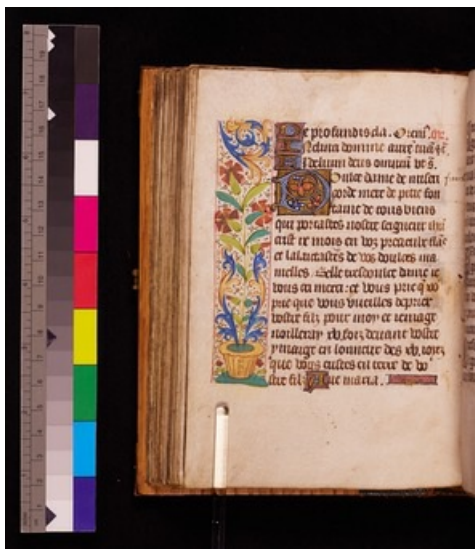 De profundis cla. Oremus.
Inclina domine aurem tuam
Fidelium deus omnium
Doulce dame de miseri
corde mere de pitie fon
taine de tous biens
qui portastes nostre seigneur
crist ix mois en voz precieulx
et lalaitastes de vos doulces ma
melles. Belle tresdoulce dame ie
vous en merci: et vous prie
prie que vous vueilles deprier
vostre filz pour moy et
xv. foiz devant vostre
ymaige en lonneur des xv. ioyes
que vous eustes en terre de vo
stre filz Ave maria.